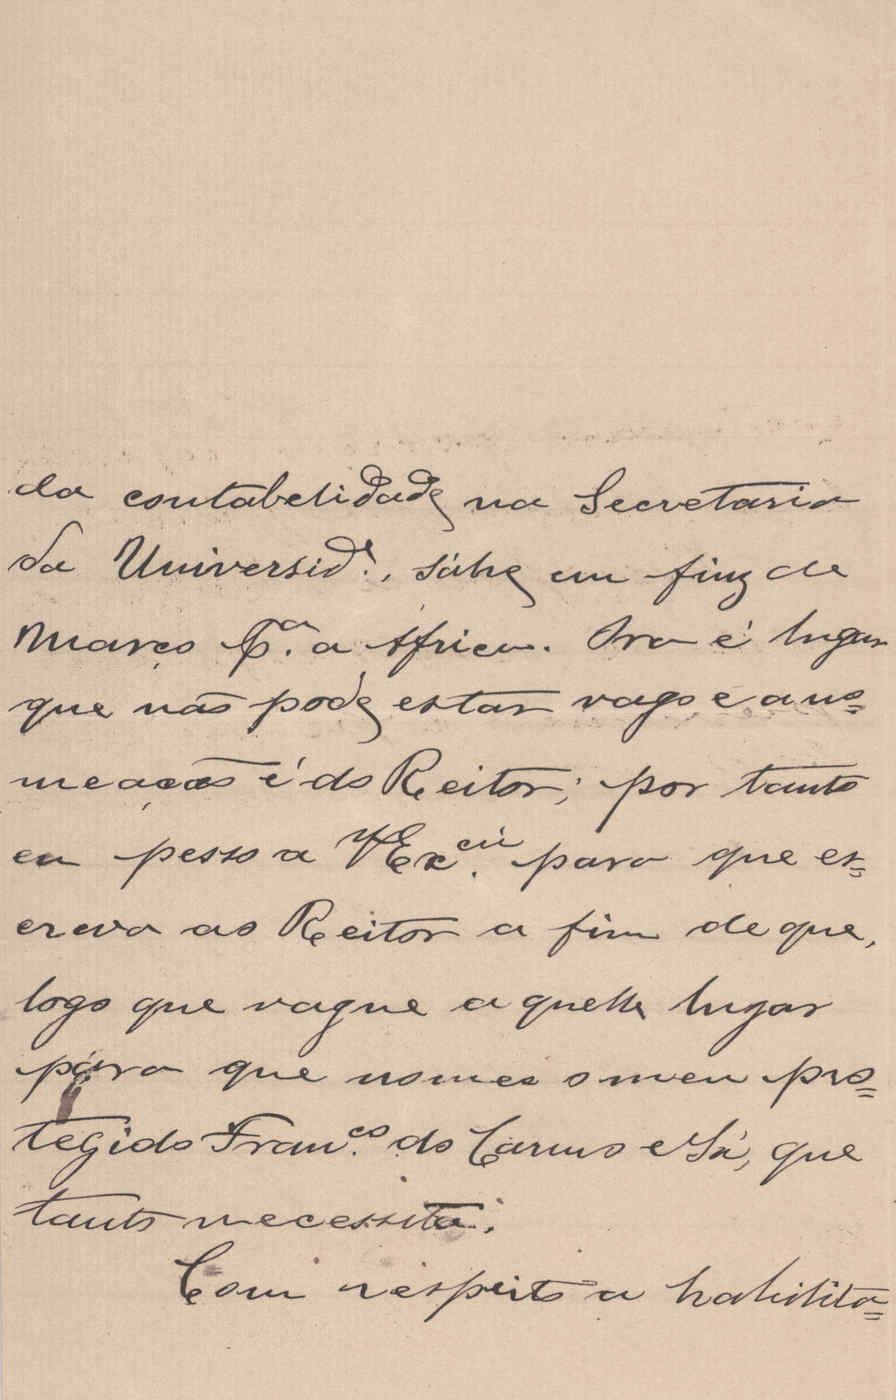 da contabelidade na Secretaria
da Universid.e, sáhe em fins de
Março p.a a Africa. Ora é lugar
que não pode estar vago e a no=
meação é do Reitor; por tanto
eu pesso a VExcia. para que es=
creva ao Reitor a fim de que,
logo que vague aquelle lugar
para que nomeie o meu pro=
tegido Fran.co do Carmo e Sá, que
tanto necessita.
Com respeito a habilita=